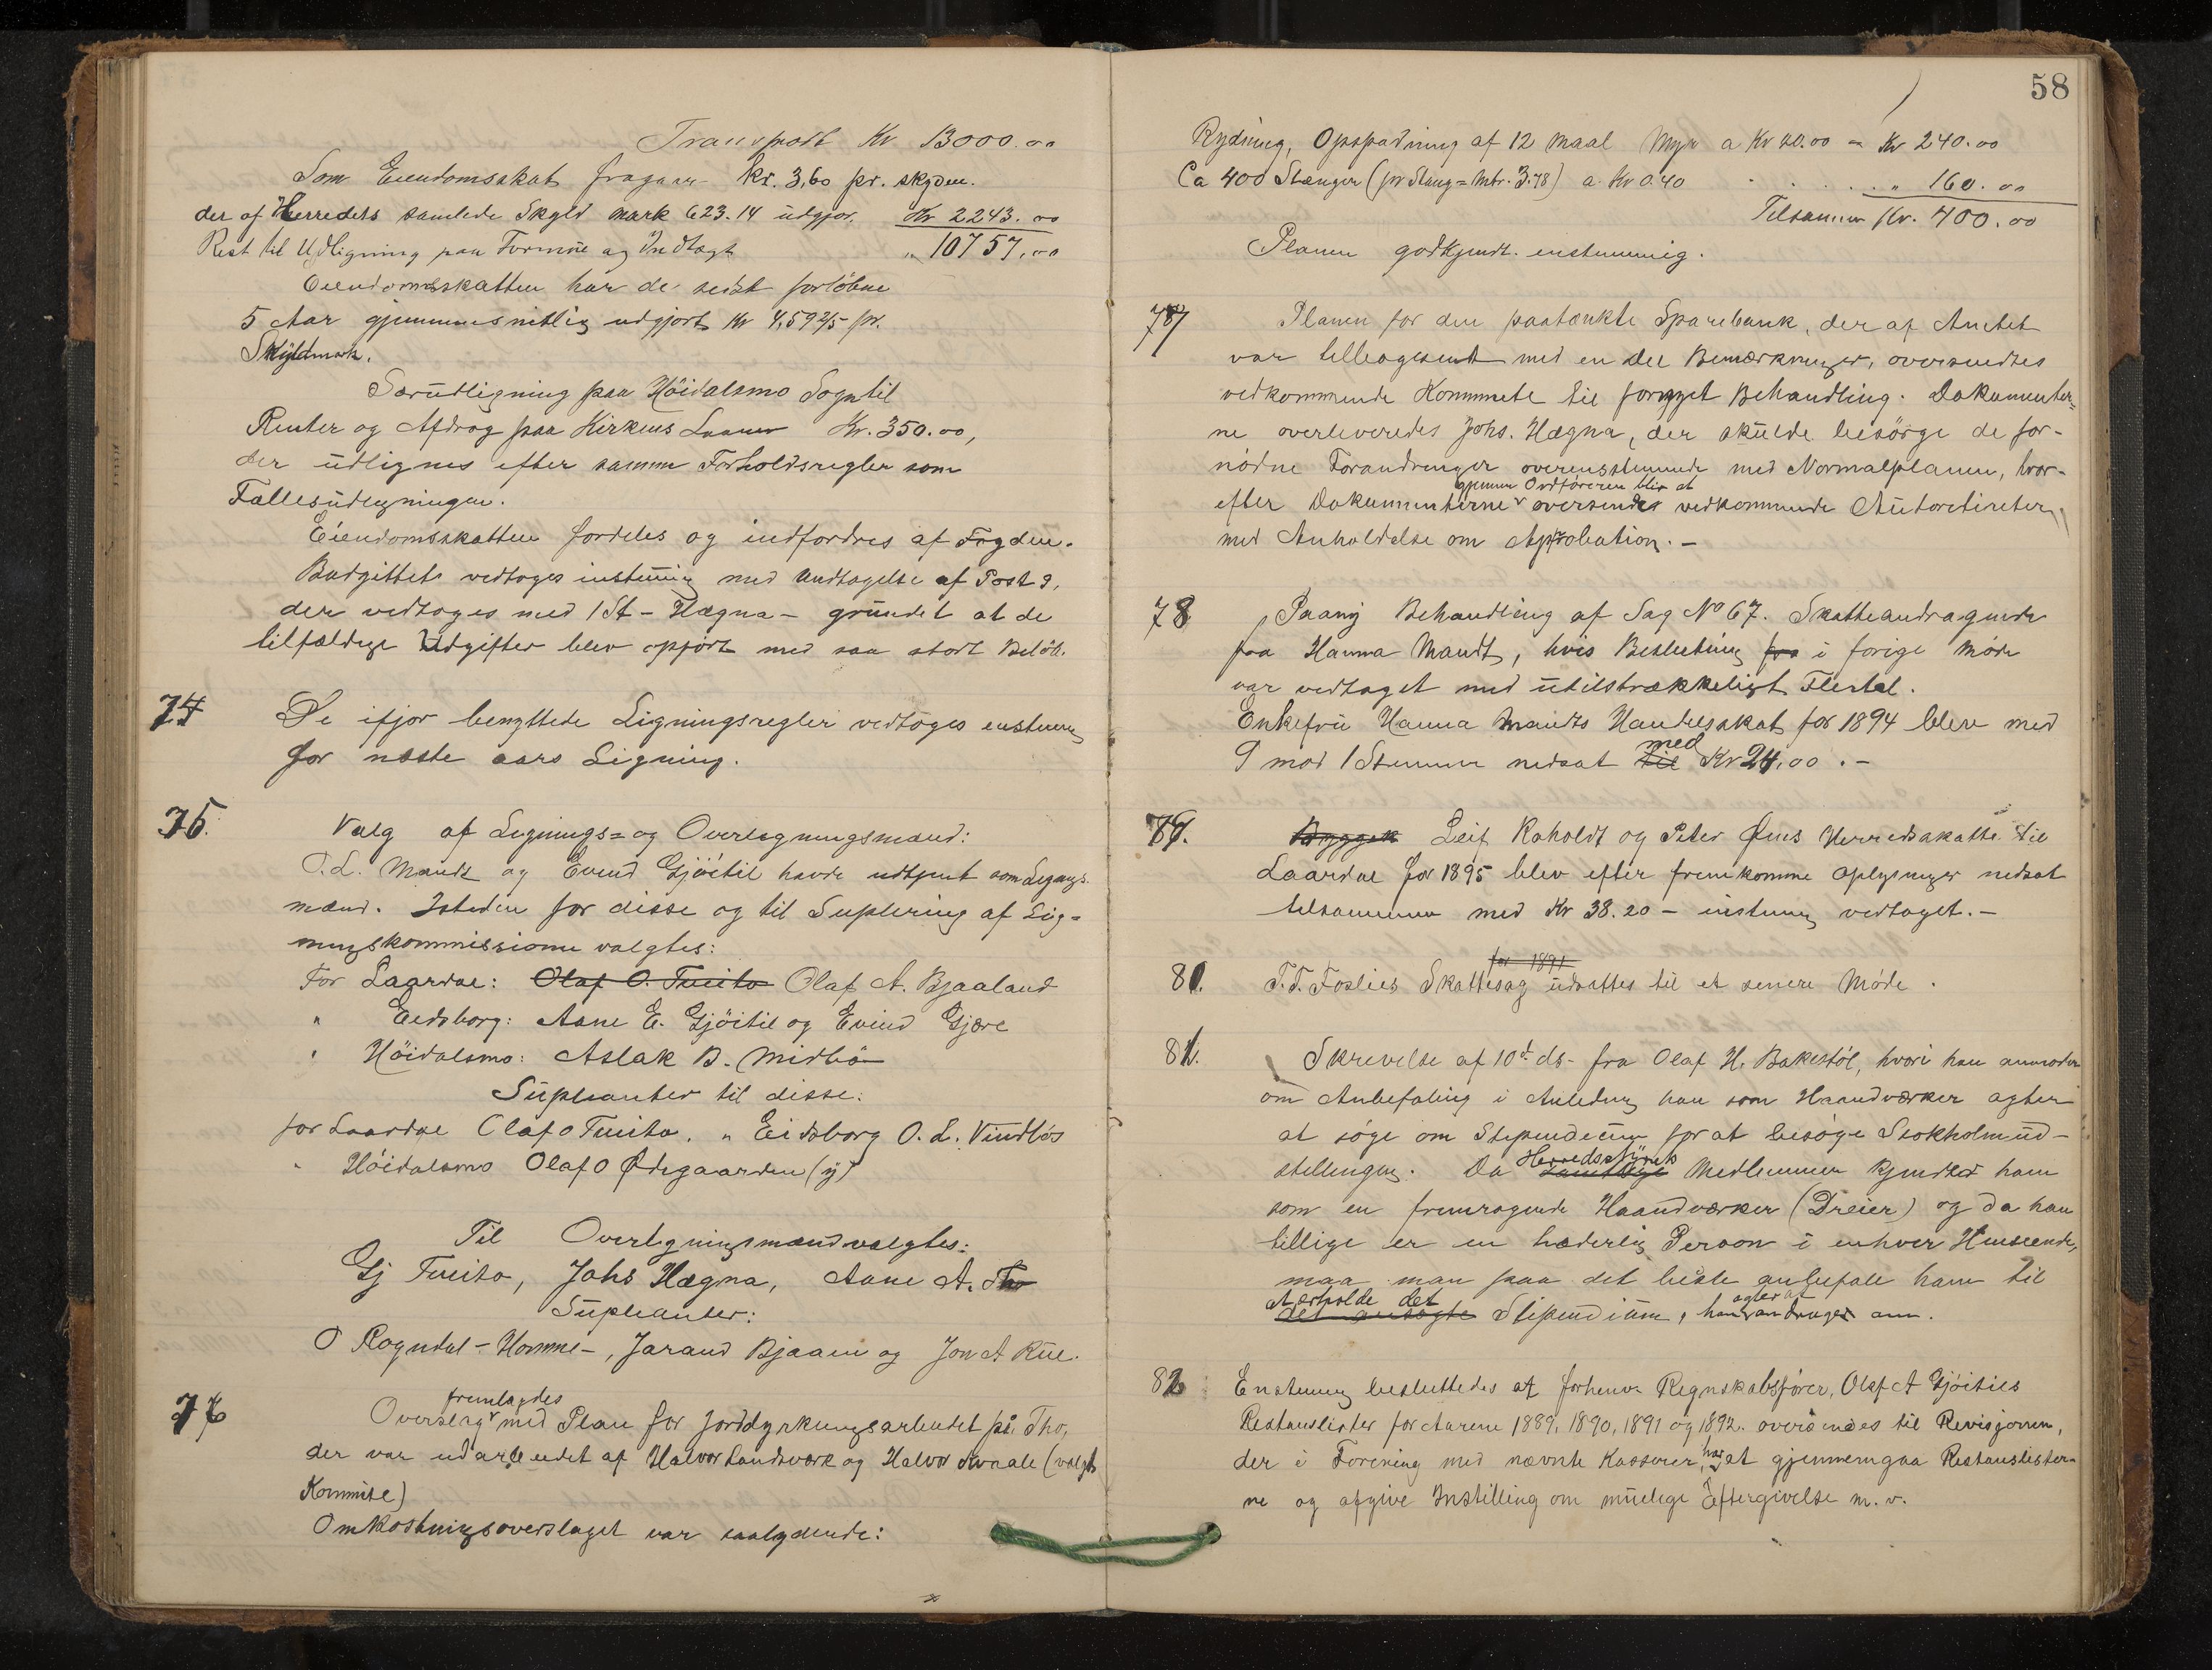 Transport Kr 13000.00
Som Eiendomsskat fragaar kr. 3,60 pr. skyden.
der af Herredets samlede Skyld mark 623.14 udgjør. Kr 2243.00
Rest til Udligning paa Formue og Indtægt " 10757.00
Eiendomsskatten har de sidst forløbne
5 Aar gjennemsnitlig udgjort Kr 4,59 2/5 pr.
Skyldmark.
Særudligning paa Høidalsmo Sogn til
Renter og Afdrag paa Kirkens Laaner Kr. 350.00,
der udlignes efter samme Forholdsregler som
Fællesudligningen.
Eiendomsskatten fordeles og indfordres af Fogden.
Budgittet vedtoges instemig med Undtagelse af Post 9,
der vedtoges med 1 St - Hægna - grundet at de
tilfældige Udgifter blev opført med saa stort Beløb.
74 De ifjor benyttede Ligningsregler vedtoges enstemig
for næste aars Ligning.
75. Valg af Lignings= og Overligningsmænd:
O.L. Mandt og Evend Gjøitil havde udtjent som Lignings
mænd. Isteden for disse og til Suplering af Lig=
ningskommissionen valgtes:
For Laardal: Olaf O. Tveito Olaf A. Bjaaland
" Eidsborg: Aane E. Gjøitil og Eivind Gjære
" Høidalsmo: Aslak B. Midbø
Supleanter til disse:
for Laardal Olaf O Tveito. " Eidsborg O. L. Vindlös
" Høidalsmo Olaf O Ødegaarden (y)
Til Overligningsmænd valgtes:
Gj Tveito, Johs Hægna, Aane A. Tho
Supleanter:
O Rogndal - Homme -, Jarand Bjaaen og Jon A Rue.
76 fremlagdes
Overslag med Plan for Jorddyrkningsarbeidet på Tho,
der var udarbeidet af Halvor Landsverk og Halvor Kvaale (valgte
Kommite)
Omkostningsoverslaget var saalydende:
58
Rydning, Opspadning af 12 Maal Myr a Kr 20.00 = Kr 240.00
Ca 400 Stænger (pr Stang = Mtr. 3.78) a Kr 0.40 . . . . . " 160.00
Tilsammen Kr. 400.00
Planen godkjendt enstemmig.
77 Planen for den paatænkte Sparebank, der af Amtet
var tilbagesendt med en Del Bemærkninger, oversendtes
vedkommende Kommite til fornyet Behandling. Dokumenter=
ne overleveredes Johs. Hægna, der skulde besørge de for-
nødne Forandringer overensstemmende med Normalplanen, hvor-
gjennem Ordføreren blir at
efter Dokumenterne oversendes vedkommende Autoritireter
med Anholdelse om Aprobation. -
78 Paany Behandling af Sag No 67. Skatteandragende
fra Hanna Mandt, hvis Beslutning fra i forige Møde
var vedtaget med utilstrækkeligt Flertal.
Enkefru Hanna Mandts Handelsskat for 1894 blev med
med
9 mod 1 Stemme nedsat til Kr 24,00. -
79. Byggek Leif Roholdt og Peter Øens Herredsskatte til
Laardal for 1895 blev efter fremkomne Oplysninger nedsat
tilsammen med Kr 38.20 - instemig vedtaget. -
for 1891
80. T.T. Foslies Skattesag udsattes til et senere Møde.
81. Skrivelse af 10d ds. fra Olaf H. Bakestöl, hvori han anmoder
om Anbefaling i Anledning han som Haandværker agter
at söge om Stipendium for at besöge Stokholmud-
Herredsstyrets
stillingen. Da samtlige Medlemmer kjendte ham
som en fremragende Haandværker (Dreier) og da han
tillige er en hæderlig Person i enhver Henseende,
maa man paa det beste anbefale ham til
at erholde det agter at
det ansøgte Stipendium, han andrager om.
82 Enstemig besluttedes at forhenv. Regnskabsfører, Olaf A Gjøitils
Restanslister for Aarene 1889, 1890, 1891 og 1892. oversendes til Revisjonen,
der i Forening med nævnte Kasserer, har at gjennemgaa Restanslister-
ne og afgive Instilling om mulige Eftergivelse m. v.